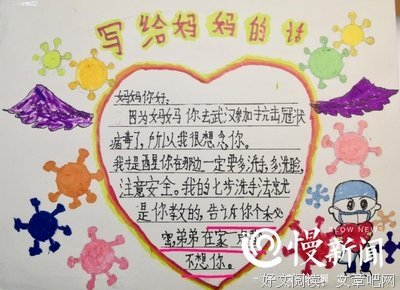 写给妈妈的话
妈妈你好:
因为妈妈你去武汉参加抗击冠状
病毒了,所以我很想念你。
我提醒你在那边一定要多洗手多洗脸,
注意安全。我的七步洗手法就
是你教的,告诉你个秘
密,弟弟在家
不想你。
慢新闻
好文阅读: 文章吧网